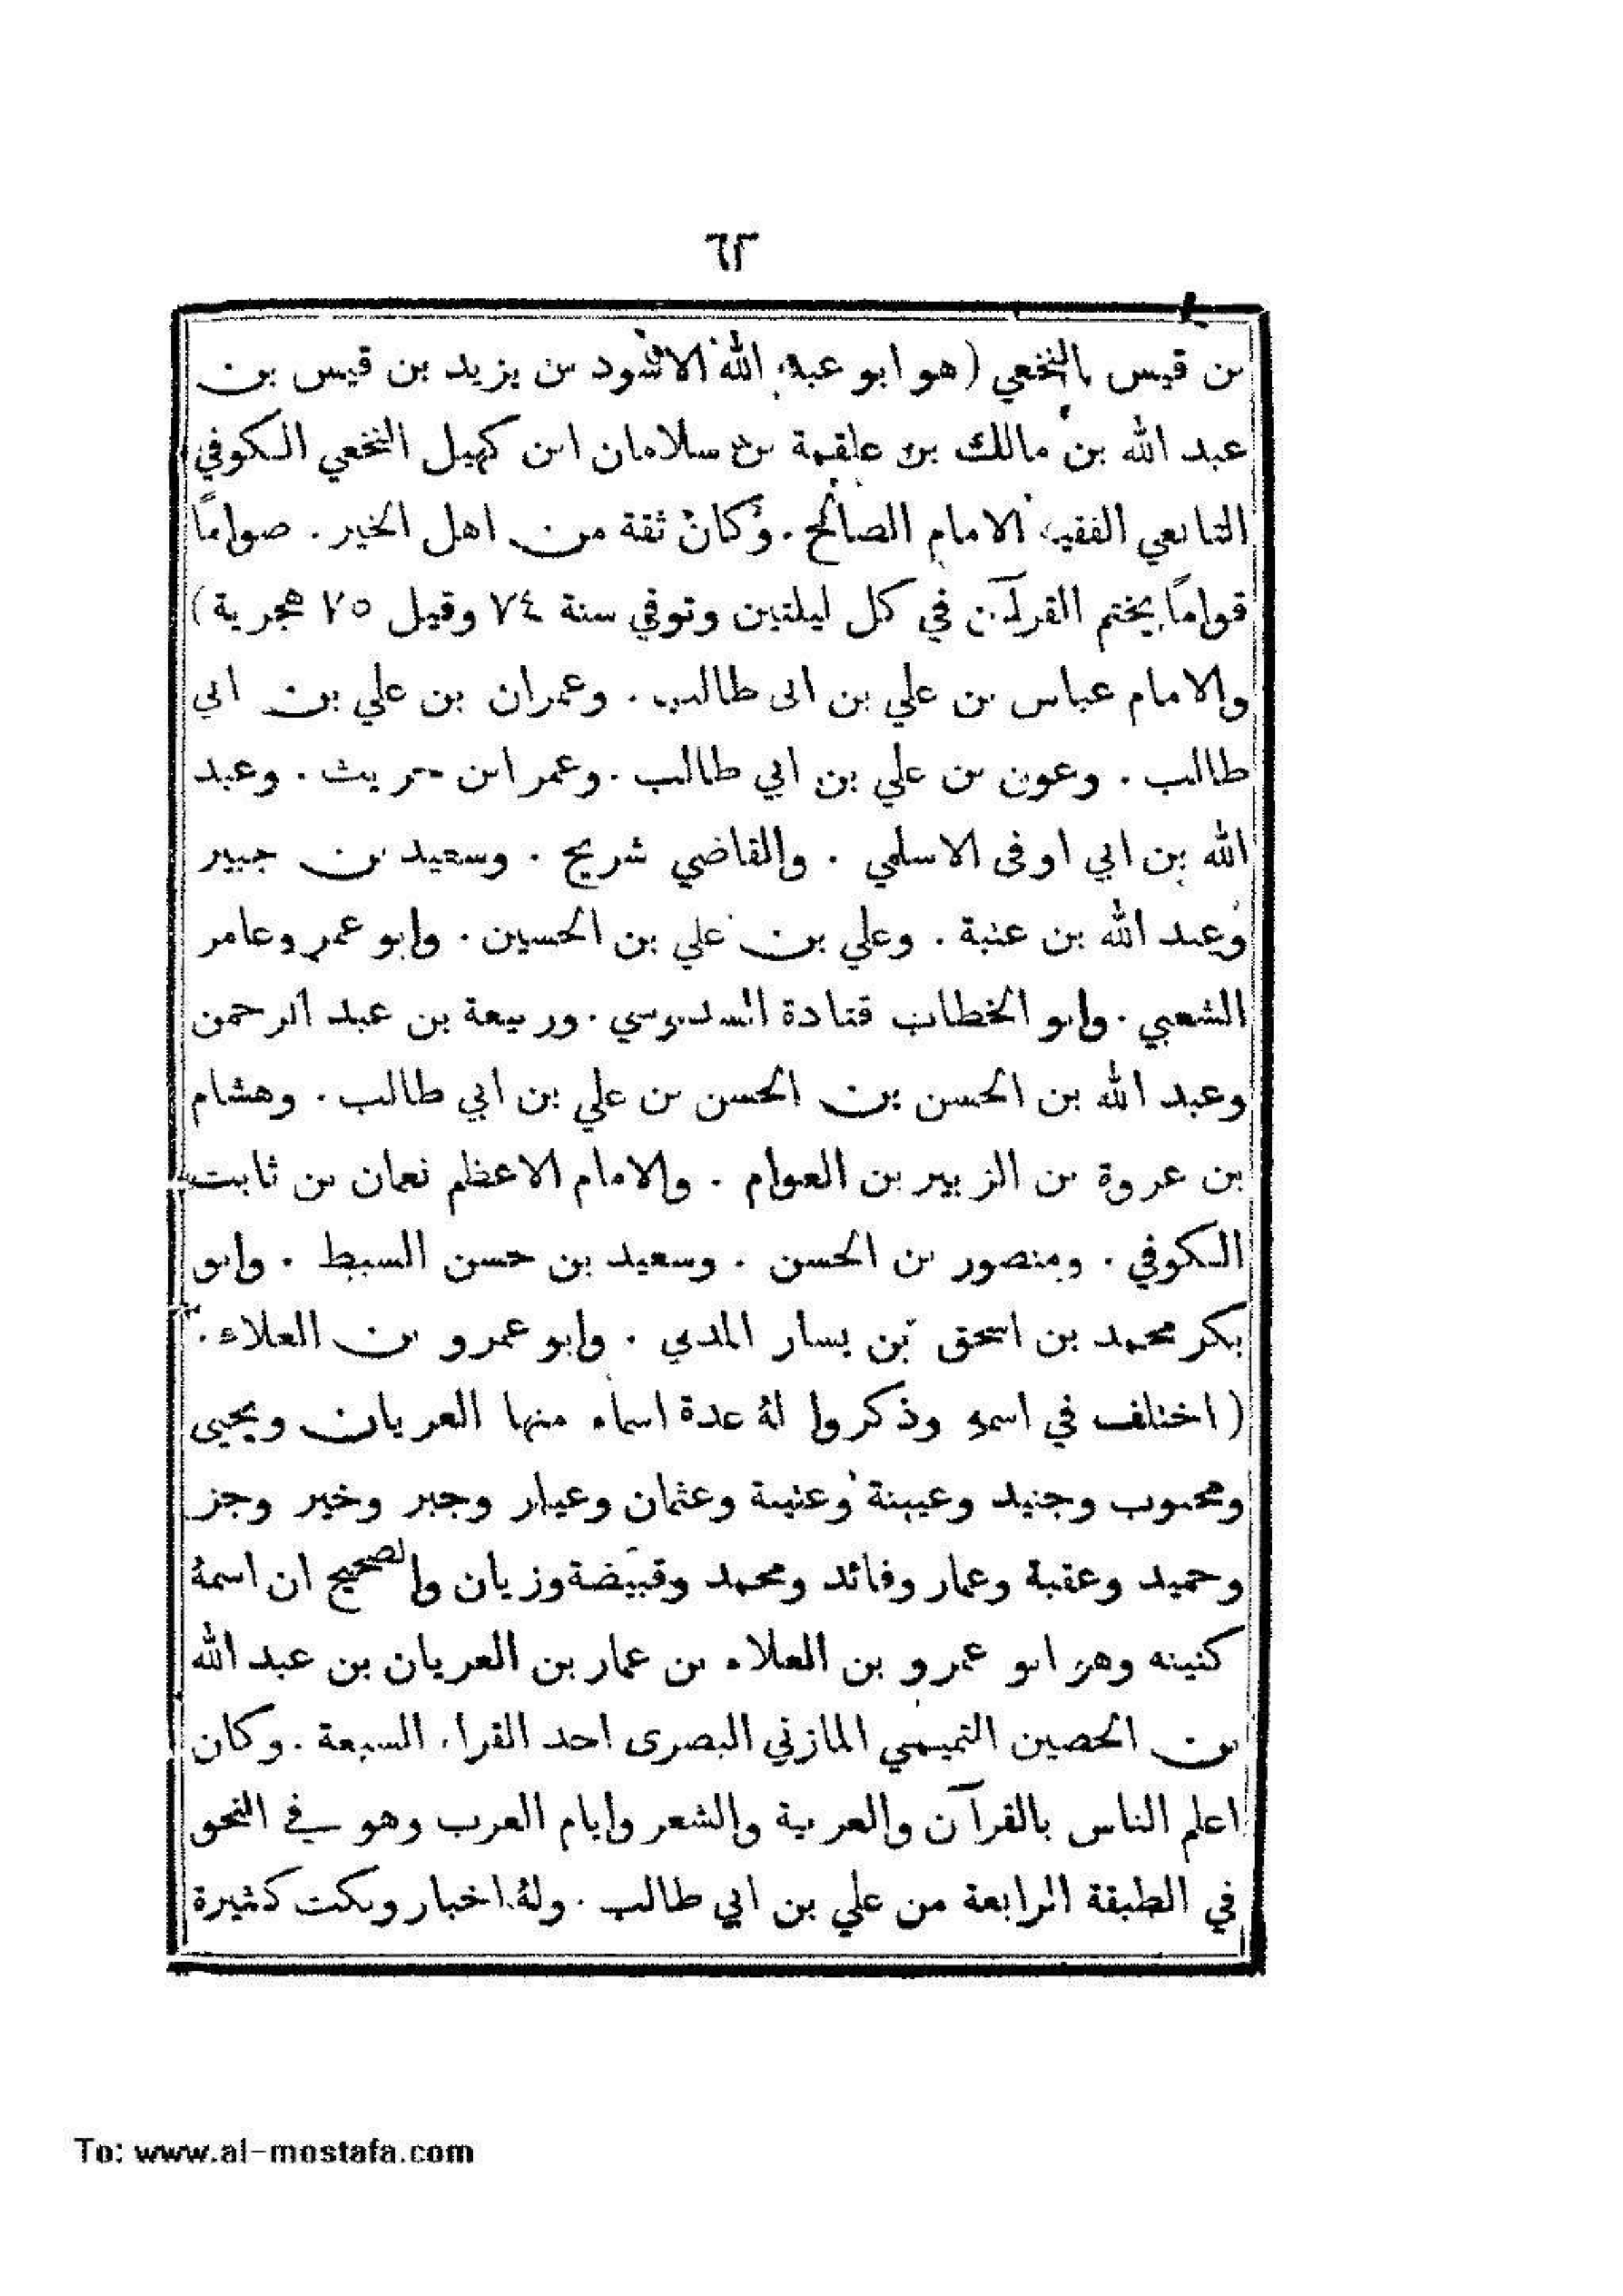 ٦٢
بن قيس النخعي (هو ابو عبد الله الاسود بن يزيد بن قيس بن
عبد الله بن مالك بن علقمة بن سلامان ابن كهيل النخعي الكوفي
التابعي الفقيه الامام الصالح . وكان ثقة من اهل الخير . صواماً
قواماً يختم القرآن في كل ليلتين وتوفي سنة ٧٤ وقيل ٧٥ هجرية)
والامام عباس بن علي بن ابى طالب . وعمران بن علي بن ابي
طالب . وعون بن علي بن ابي طالب . وعمر ابن حريث . وعبد
الله بن ابي اوفى الاسلمي . والقاضي شريح . وسعيد بن جبير
وعبد الله بن عتبة . وعلي بن علي بن الحسين . وابو عمرو عامر
الشعبي . وابو الخطاب قتادة السدوسي . وربيعة بن عبد الرحمن
وعبد الله بن الحسن بن الحسن بن علي بن ابي طالب . وهشام
بن عروة بن الزبير بن العوام . والامام الاعظم نعمان بن ثابت
الكوفي . ومنصور بن الحسن . وسعيد بن حسن السبط . وابو
بكر محمد بن اسحق بن يسار المدني . وابو عمرو بن العلاء .
( اختلف في اسمهِ وذكروا لهُ عدة اسماء منها العريان ويحيى
ومحبوب وجنيد وعيينة وعتيبة وعثمان وعيار وجبر وخير وجز
وحميد وعقبة وعمار وفائد ومحمد وقبيضة وزيان والصحيح ان اسمهُ
كنيته وهو ابو عمرو بن العلاء بن عمار بن العريان بن عبد الله
بن الحصين التميمي المازني البصرى احد القراء السبعة . وكان
اعلم الناس بالقرآن والعربية والشعر وايام العرب وهو في النحو
في الطبقة الرابعة من علي بن ابي طالب . ولهُ اخبار ونكت كثيرة
To: www.al-mostafa.com